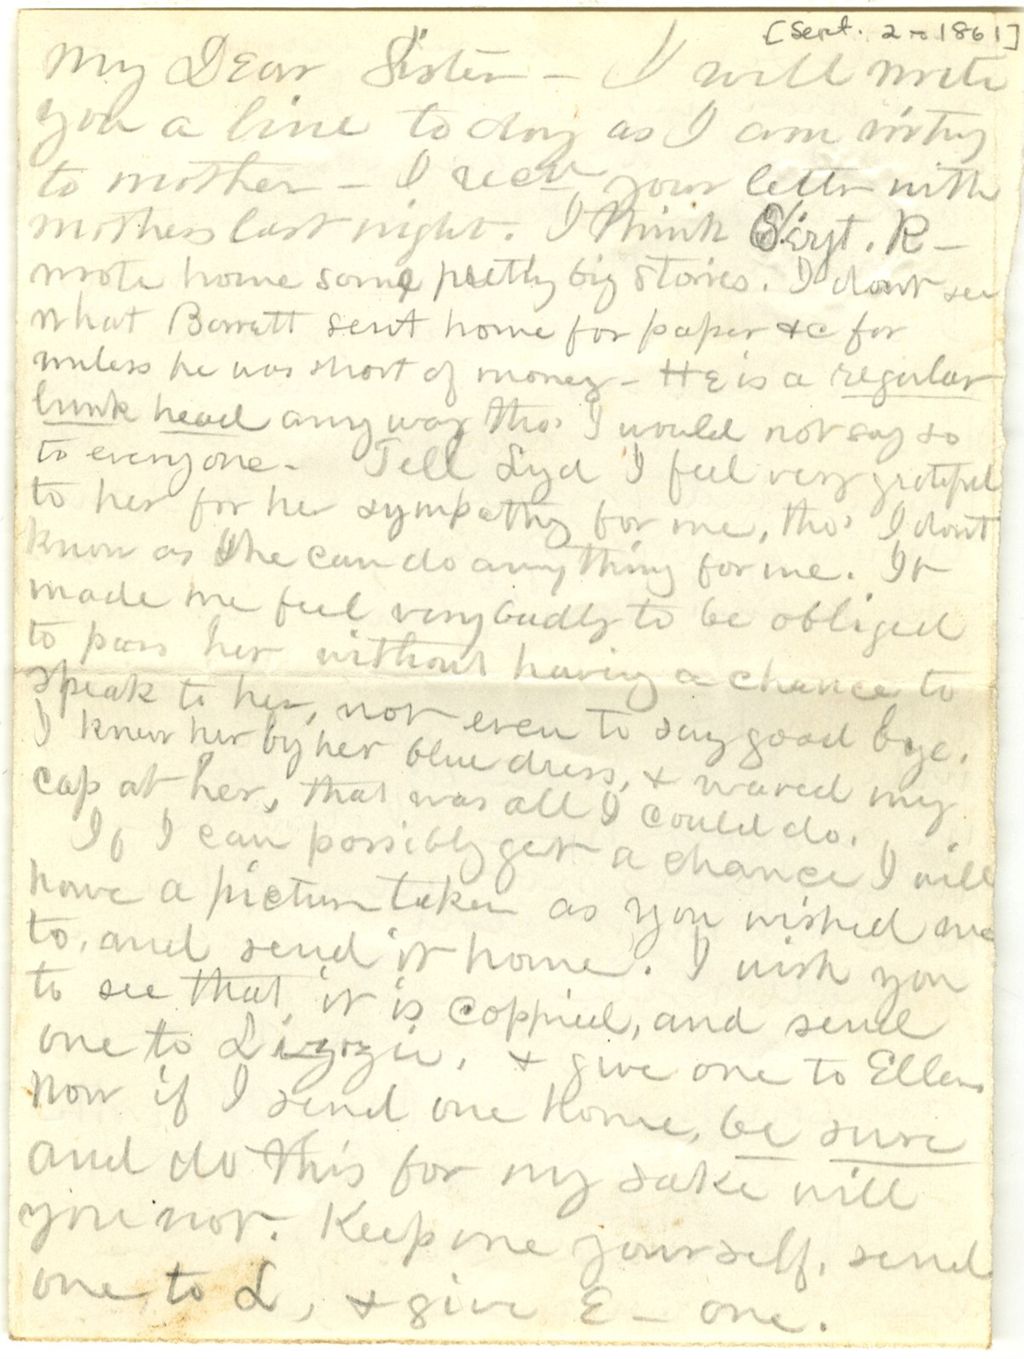 [Sept. 2 - 1861]
My Dear Sister - I will write
you a line to day as I am writing
to mother - I recd your letter with
mothers last night. I think Sergt. R -
wrote home some pretty big stories. I dont see
what Barratt sent home for paper &c for
unless he was short of money - He is a regular
lunk head any way tho' I would not say so
to everyone - Tell Lyd I feel very grateful
to her for her sympathy for me, tho' I dont
know as she can do anything for me. It
made me feel very badly to be obliged
to pass her without having a chance to
speak to her, not even to say good bye.
I knew her by her blue dress, & waved my
cap at her, that was all I could do.
If I can possibly get a chance I will
have a picture taken as you wished me
to, and send it home. I wish you
to see that it is coppied, and send
one to Lizzie, & give one to Ellen
Now if I send one home, be sure
and do this for my sake will
you not. Keep one yourself, send
one to L, & give E - one.